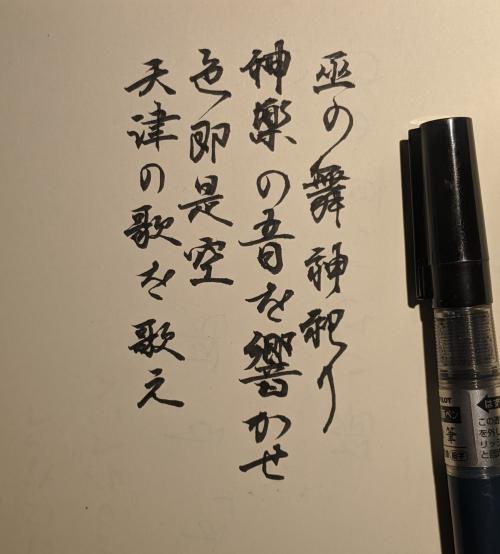 巫の舞神祀り
神楽の音を響かせ
色即是空
天津の歌を歌え
ペン
筆